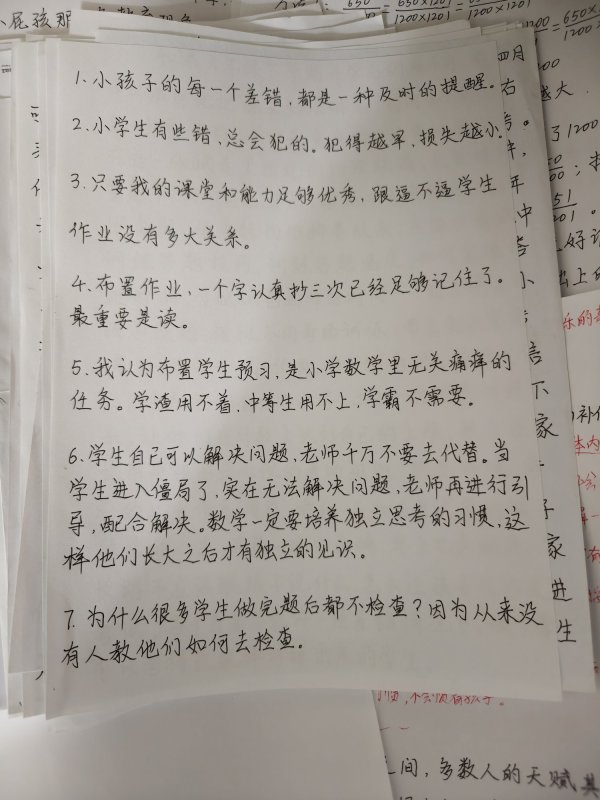 小屁孩那
1.小孩子的每一个差错,都是一种及时的提醒。
2.小学生有些错,总会犯的。犯得越早,损失越小。
3.只要我的课堂和能力足够优秀,跟逼不逼学生
作业没有多大关系。
4.布置作业,一个字认真抄三次已经足够记住了。
最重要是读。
5.我认为布置学生预习,是小学数学里无关痛痒的
任务。学渣用不着,中等生用不上,学霸不需要。
6.学生自己可以解决问题,老师千万不要去代替。当
学生进入僵局了,实在无法解决问题,老师再进行引
导,配合解决。数学一定要培养独立思考的习惯,这
样他们长大之后才有独立的见识。
7.为什么很多学生做完题后都不检查?因为从来没
有人教他们如何去检查。
四月
右
越大
了1200
中
好
小
言
下
家
子
家
进
生
间,多数人的天赋其